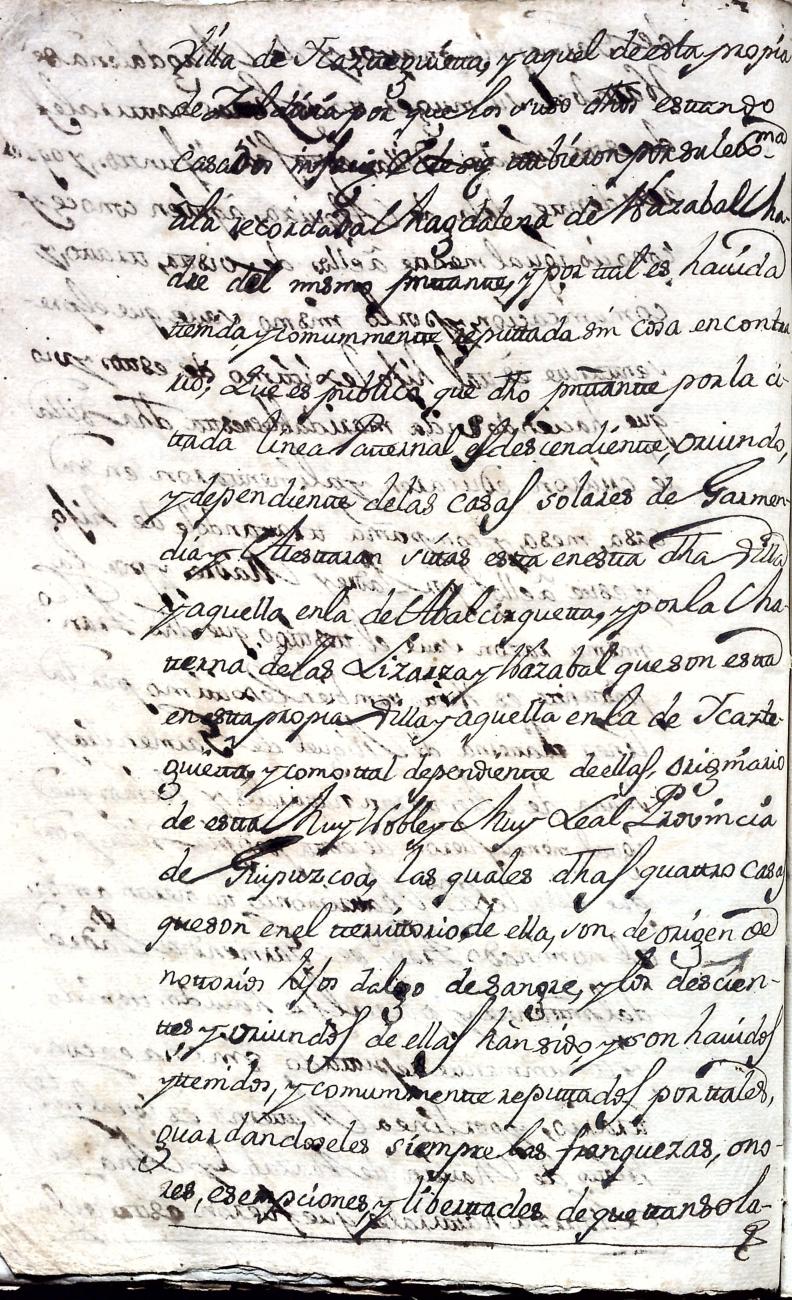 Villa de Icazteguietta, y aquel de esta propia
de Zaldivia por que los suso dhos estando
casados in facie Eccles.ę tubieron por su lex.ma
ala recordada Magdalena de Bazabal Ma-
dre del mismo pnttante, y por ttal es havida
ttenida y comunmentte reputtada sin cosa en contra
rio; Que es publico que dho pnttante por la ci-
ttada linea Patternal es descendiente, oriundo,
y dependientte delas casas solares de Garmen-
dia y sittas esta en estta dha Villa
y aquella en la de Abalcizquetta, y por la Ma-
tterna de las Lizarza y Bazabal que son estta
en estta propia Villa y aquella en la de Icazte-
guietta, y como ttal dependientte de ellas, originario
de estta Muy Noble y Muy Leal Provincia
de Guipuzcoa, las quales dhas quattro casas
que son en el tterrittorio de ella, son de origen de
nottorios hijos dalgo de sangre, y los descien-
ttes y oriundos de ellas hàn sido, y son havidos
y ttenidos, y comunmentte reputtados por ttales,
guardandoseles siempre las franquezas, ono-
res, esempciones, y liberttades de que ttan sola-